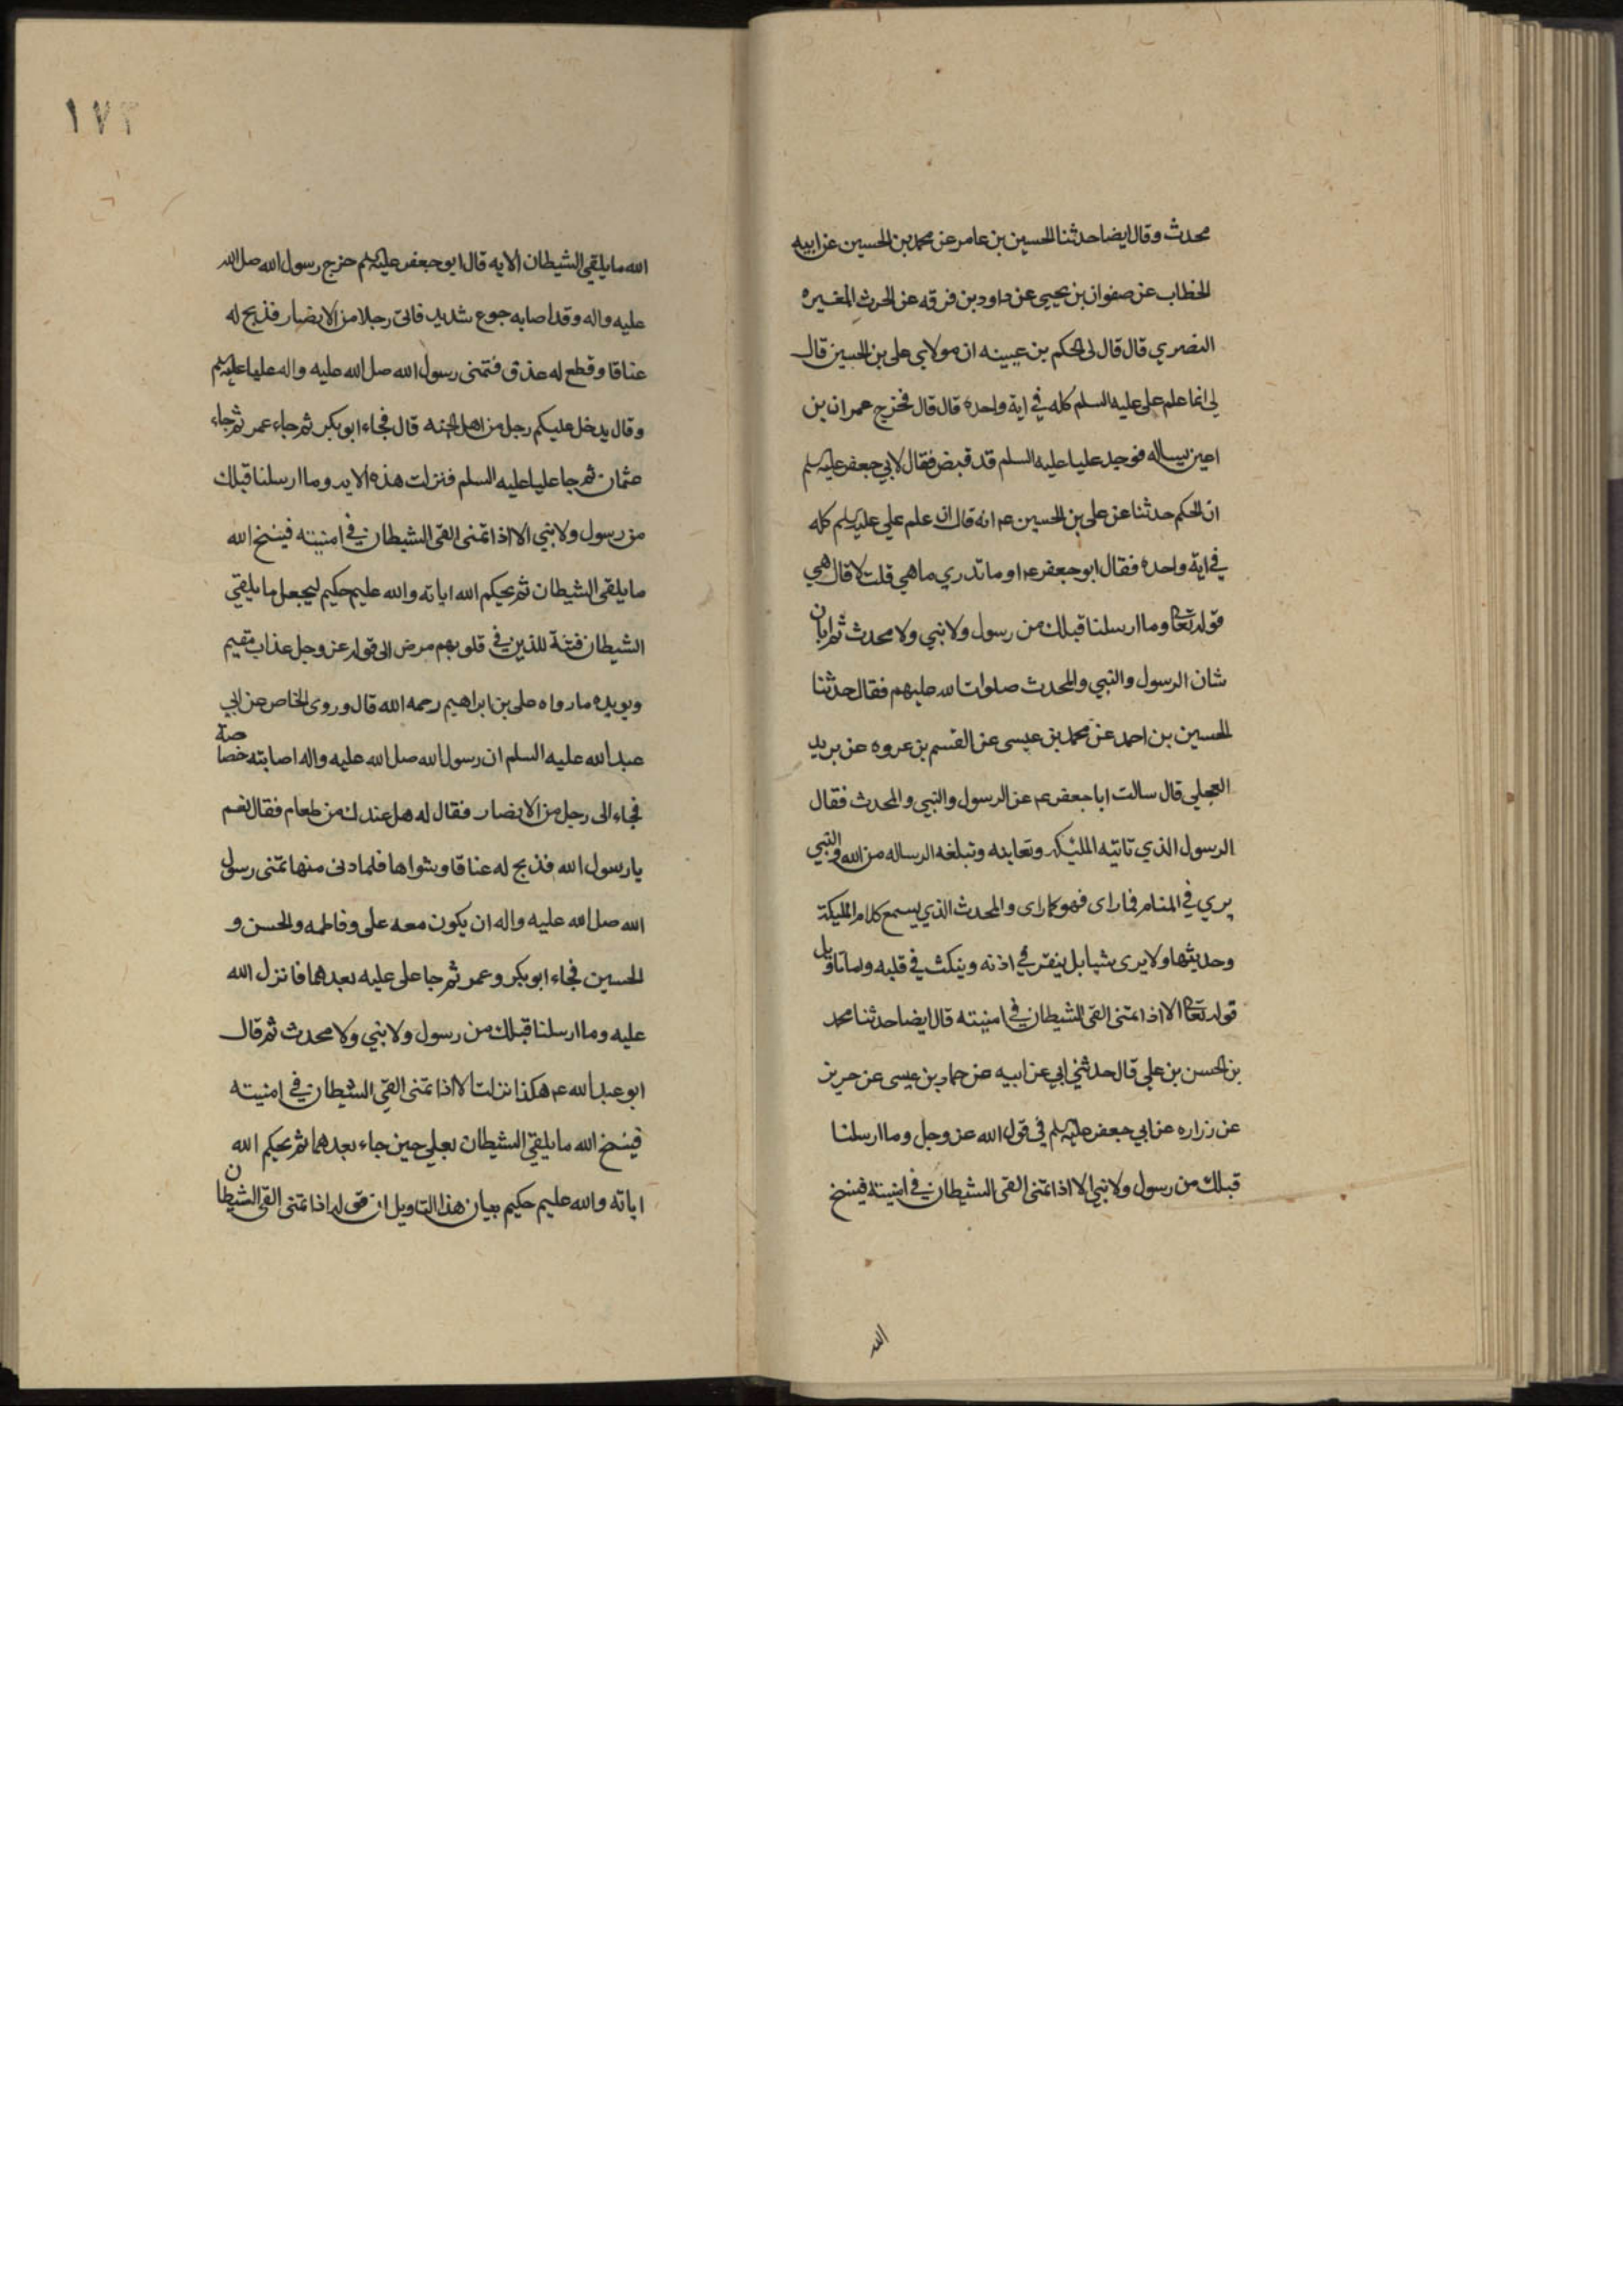 محدث وقال ايضا حدثنا الحسين بن عامر عن محمد بن الحسين عن ابيه
الخطاب عن صفوان بن يحيى عن داود بن فرقه عن الحرث المغيره
النصري قال قال لى الحكم بن عيينه ان مولاي على بن الحسين قال
لى انما علم على عليه السلم كله في اية واحده قال قال فخرج عمران بن
اعين يساله فوجد عليا عليه السلم قد قبض فقال لابي جعفر عليه سلم
ان الحكم حدثنا عن على بن الحسين عم انه قال ان علم علي عليه سلم كله
في اية واحده فقال ابو جعفر عم او ما تدري ما هي قلت لا قال هي
قوله تعالى وما ارسلنا قبلك من رسول ولا نبي ولا محدث ثم ابان
شان الرسول والنبي والمحدث صلوات الله عليهم فقال حدثنا
الحسين بن احمد عن محمد بن عيسى عن القسم بن عروه عن بريد
العجلي قال سالت ابا جعفر عم عن الرسول والنبي والمحدث فقال
الرسول الذي تاتيه المليكه وتعاينه وتبلغه الرساله من الله والنبي
يري في المنام فما راى فهو كما راى والمحدث الذي يسمع كلام المليكة
وحديثها ولا يرى شيا بل ينقر في اذنه وينكث في قلبه واما تاويل
قوله تعالى الا اذا تمنى القى الشيطان في امنيته قال ايضا حدثنا محمد
بن الحسن بن علي قال حدثني ابي عن ابيه عن حماد بن عيسى عن حريز
عن زراره عن ابي جعفر عليه سلم في قول الله عز وجل وما ارسلنا
قبلك من رسول ولا نبي الا اذا تمنى القى الشيطان في امنيته فينسخ
الله
١٧٣
الله ما يلقي الشيطان الايه قال ابو جعفر عليه سلم خرج رسول الله صل الله
عليه واله وقد اصابه جوع شديد فاتى رجلا من الانصار فذبح له
عناقا وقطع له عذق فتمنى رسول الله صل الله عليه واله عليا عليه سلم
وقال يدخل عليكم رجل من اهل الجنه قال فجاء ابو بكر ثم جاء عمر ثم جاء
عثمان ثم جا عليا عليه السلم فنزلت هذه الايه وما ارسلنا قبلك
من رسول ولا نبي الا اذا تمنى القى الشيطان في امنيته فينسخ الله
ما يلقى الشيطان ثم يحكم الله اياته والله عليم حكيم ليجعل ما يلقي
الشيطان فتنة للذين في قلوبهم مرض الى قوله عز وجل عذاب مقيم
ويويده ما رواه على بن ابراهيم رحمه الله قال وروى الخاص عن ابي
عبد الله عليه السلم ان رسول الله صل الله عليه واله اصابته خصاصة
فجاء الى رجل من الانصار فقال له هل عندك من طعام فقال نعم
يا رسول الله فذبح له عناقا وشواها فلما دنى منها تمنى رسول
الله صل الله عليه واله ان يكون معه على وفاطمه والحسن و
الحسين فجاء ابو بكر وعمر ثم جا على عليه بعدهما فانزل الله
عليه وما ارسلنا قبلك من رسول ولا نبي ولا محدث ثم قال
ابو عبد الله عم هكذا نزلت الا اذا تمنى القى الشيطان في امنيته
فينسخ الله ما يلقي الشيطان بعلي حين جاء بعدهما ثم يحكم الله
اياته والله عليم حكيم بيان هذا التاويل ان قوله اذا تمنى القى الشيطان